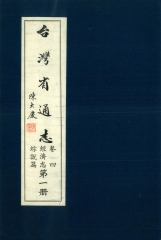 台灣省通志
陳大慶
卷四
經濟志
綜說篇
第一冊